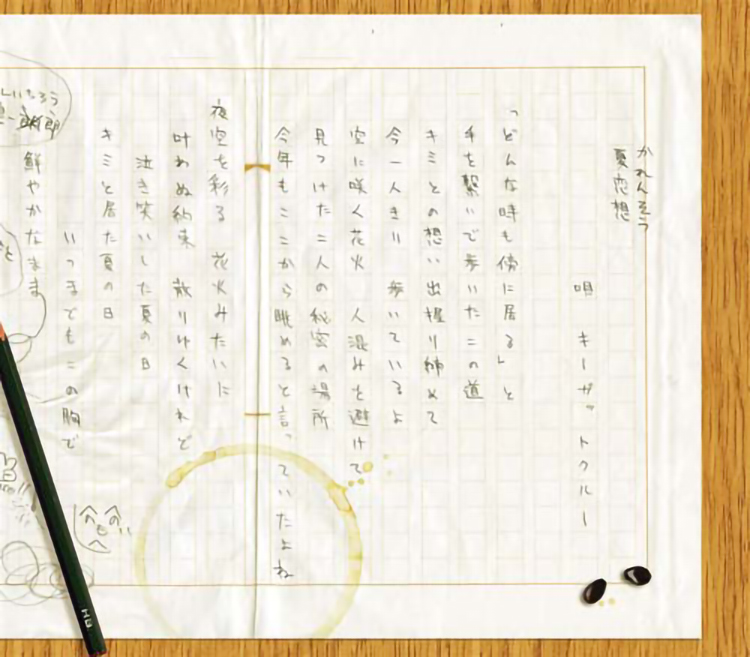 かれんそう
夏恋想
唄
「どんな時も傍に居る」と
手を繋いで歩いたこの道
キミとの想い出握り締めて
今一人きり 歩いているよ
空に咲く花火 人混みを避けて
見つけた二人の秘密の場所
今年もここから眺めると言っていたよね
夜空を彩る 花火みたいに
叶わぬ約束 散りゆくけれど
泣き笑いした夏の日
キミと居た夏の日
いつまでもこの胸で
鮮やかなまま
HB